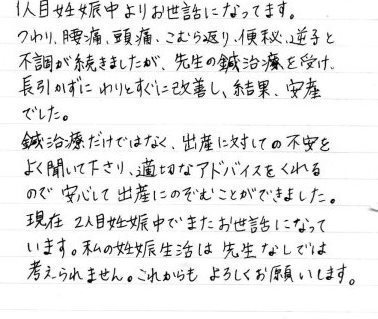 1人目妊娠中よりお世話になってます。
つわり、腰痛、頭痛、こむら返り、便秘、逆子と
不調が続きましたが、先生の鍼治療を受け、
長引かずに わりとすぐに改善し、結果、安産
でした。
鍼治療だけではなく、出産に対しての不安を
よく聞いて下さり、適切なアドバイスをくれる
ので 安心して出産にのぞむことができました。
現在 2人目妊娠中でまたお世話になって
います。私の妊娠生活は 先生なしでは
考えられません。これからも よろしくお願いします。